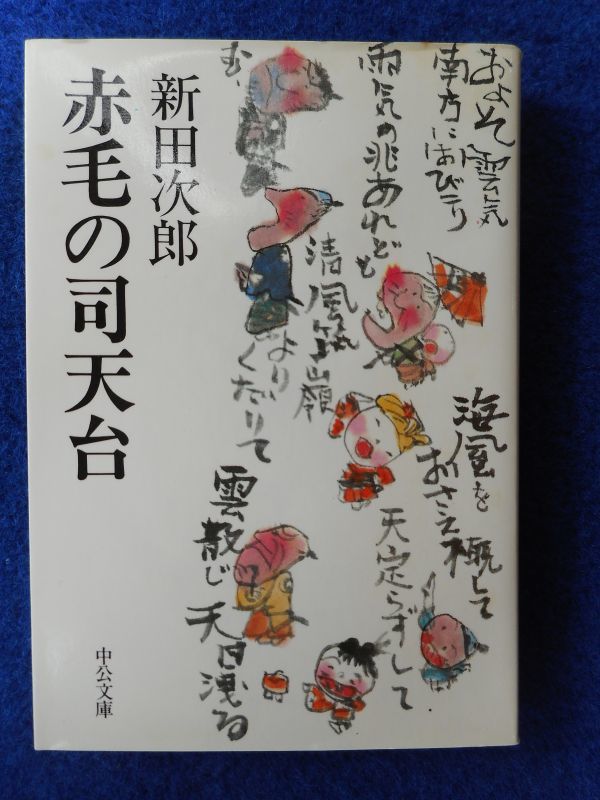 およそ雲気
南方にはびこり
雨気の兆あれども
清風筑山嶺
より
くだりて
海風を
おさえ概して
天定らずして
雲散じ
天日洩る
む、
新田次郎
赤毛の司天台
中公文庫